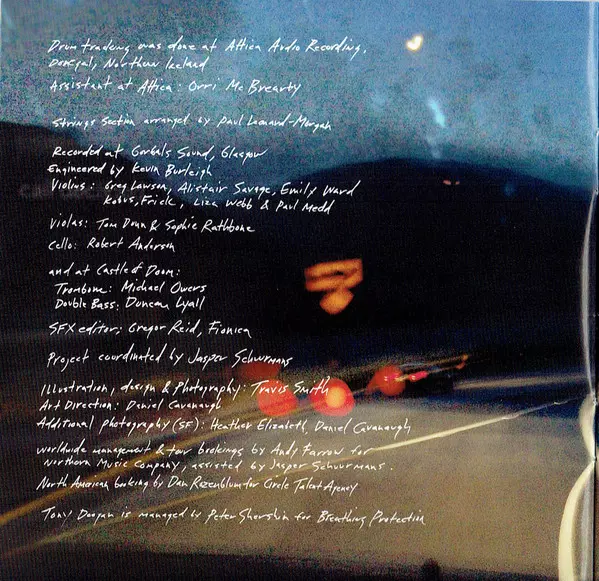 Drum tracking was done at Attica Audio Recording,
Donegal, Northern Ireland
Assistant at Attica: Orri Mc Brearty
Strings section arranged by Paul Leonard-Morgan
Recorded at Gorbals Sound, Glasgow
Engineered by Kevin Burleigh
Violins: Greg Lawson, Alistair Savage, Emily Ward
Kobus, Frick, Liza Webb & Paul Medd
Violas: Tom Dunn & Sophie Rathbone
Cello: Robert Anderson
and at Castle of Doom:
Trombone: Michael Owers
Double Bass: Duncan Lyall
SFX editor: Gregor Reid, Fionica
Project coordinated by Jasper Schuurmans
Illustration, design & Photography: Travis Smith
Art Direction: Daniel Cavanaugh
Additional photography (SF): Heather Elizabeth, Daniel Cavanaugh
Worldwide management & tour bookings by Andy Farrow for
Northern Music Company, assisted by Jasper Schuurmans.
North American booking by Dan Rozenblum for Circle Talent Agency
Tony Doogan is managed by Peter Shershin for Breathing Protection